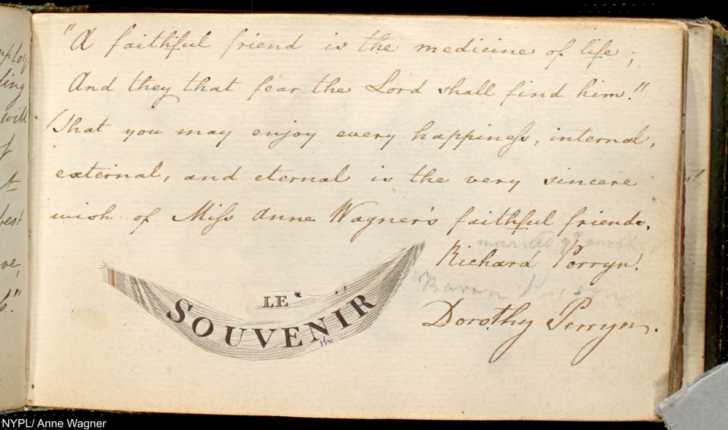 "A faithful friend is the medicine of life;
And they that fear the Lord shall find him."
That you may enjoy every happiness, internal,
external, and eternal is the very sincere
wish of Miss Anne Wagner's faithful friends,
Richard Perryn.
Dorothy Perryn.
LE
SOUVENIR
NYPL/ Anne Wagner